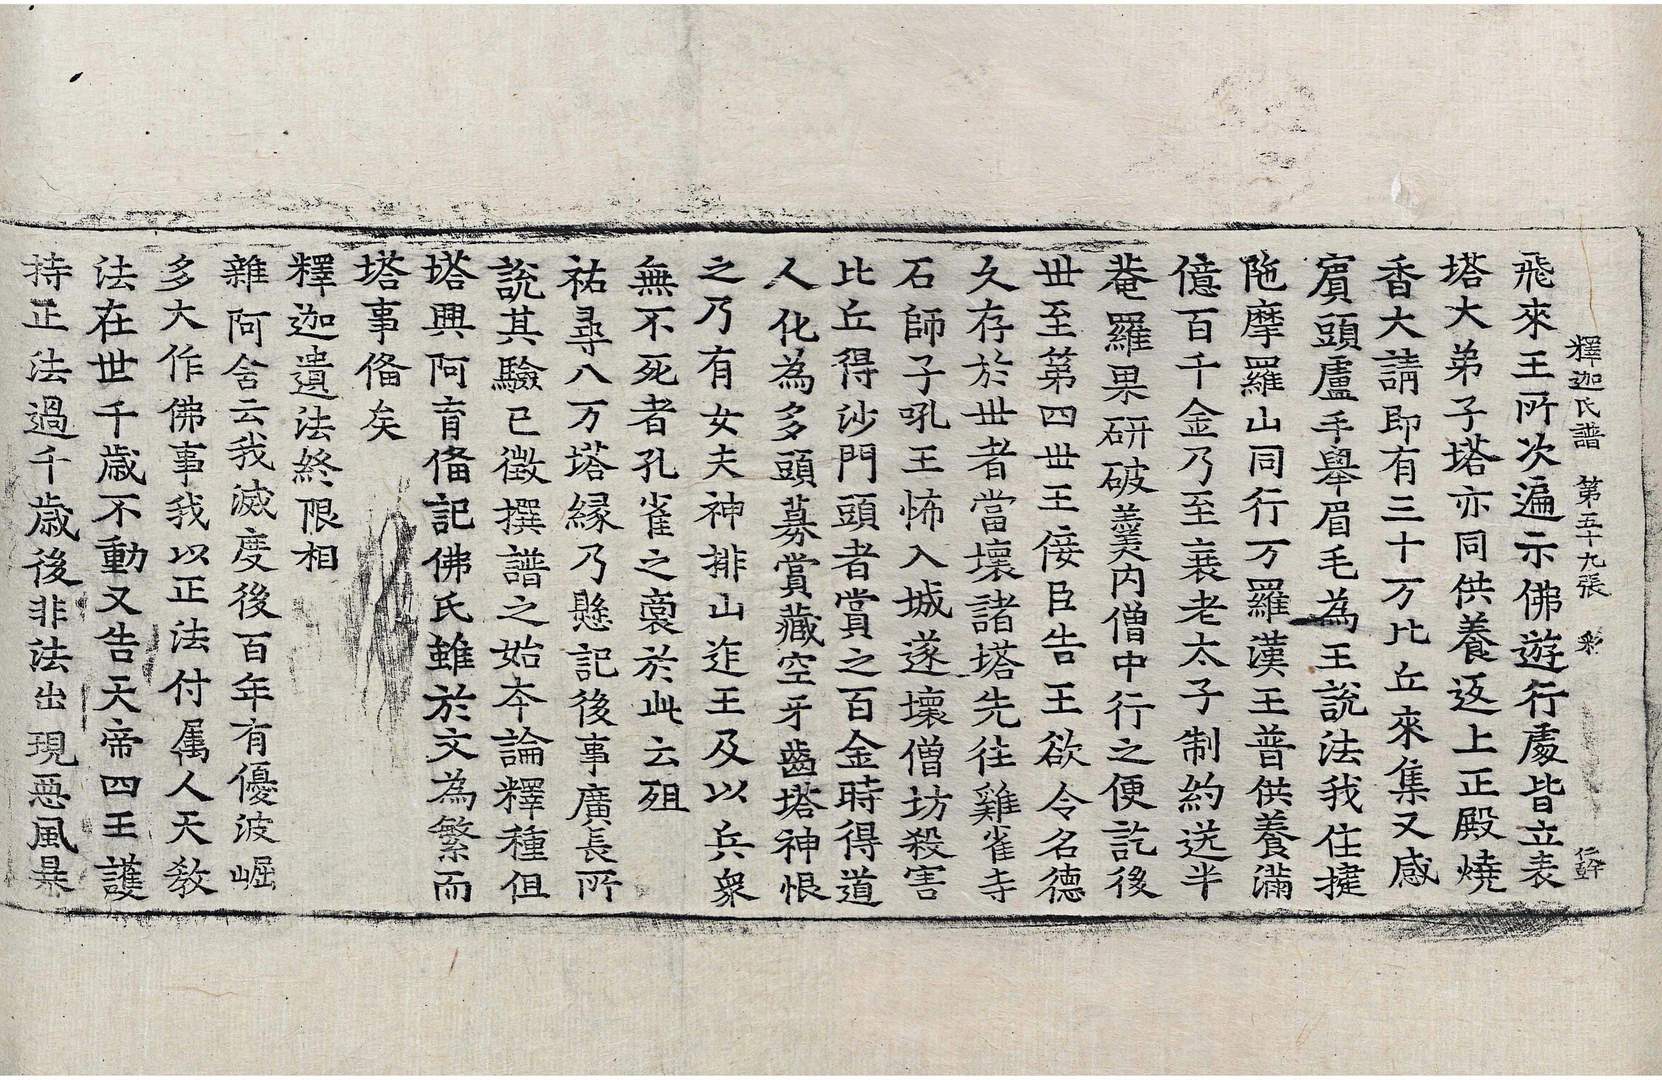 釋迦氏譜 第五十九張 彩 仁幹
飛來王所次遍示佛遊行處皆立表
塔大弟子塔亦同供養返上正殿燒
香大請即有三十万比丘來集又感
賓頭盧手舉眉毛為王說法我住揵
陁摩羅山同行万羅漢王普供養滿
億百千金乃至衰老太子制約送半
菴羅果研破羹內僧中行之便訖後
丗至第四丗王佞臣告王欲令名德
久存於丗者當壞諸塔先往雞雀寺
石師子吼王怖入城遂壞僧坊殺害
比丘得沙門頭者賞之百金時得道
人化為多頭募賞藏空牙齒塔神恨
之乃有女夫神排山迮王及以兵衆
無不死者孔雀之裔於此云殂
祐尋八万塔縁乃懸記後事廣長所
說其驗已徵撰譜之始夲論釋種但
塔興阿育俻記佛氏雖於文為繁而
塔事俻矣
釋迦遺法終限相
雜阿含云我滅度後百年有優波崛
多大作佛事我以正法付屬人天教
法在世千歲不動又告天帝四王護
持正法過千歲後非法出現惡風暴